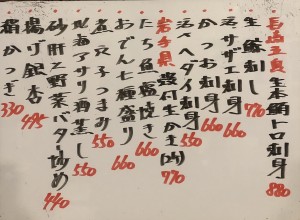 長崎五島 生本鮪トロ刺身 880
生鯵刺し 770
活サザエ刺身 660
かつお刺身 660
活ヘダイ刺身 550
岩手県 殻付生かき 770
たち魚塩焼き 660
おでん七種盛り 660
煮穴子つまみ 550
アサリ酒蒸し 550
砂肝と野菜バター炒め 440
揚げ銀杏 495
330